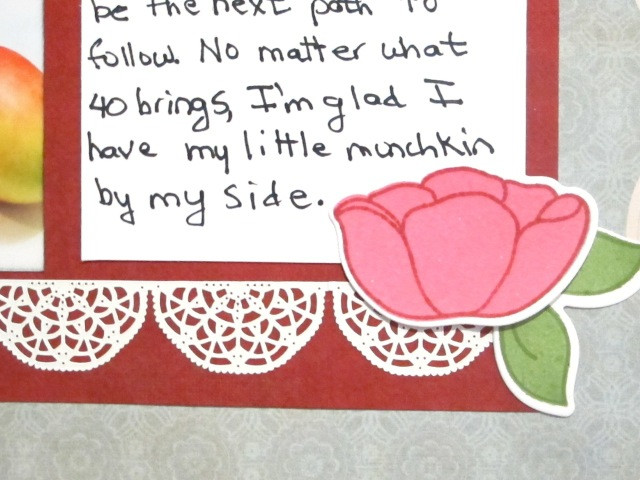 be the next path to
follow. No matter what
40 brings, I'm glad I
have my little munchkin
by my side.